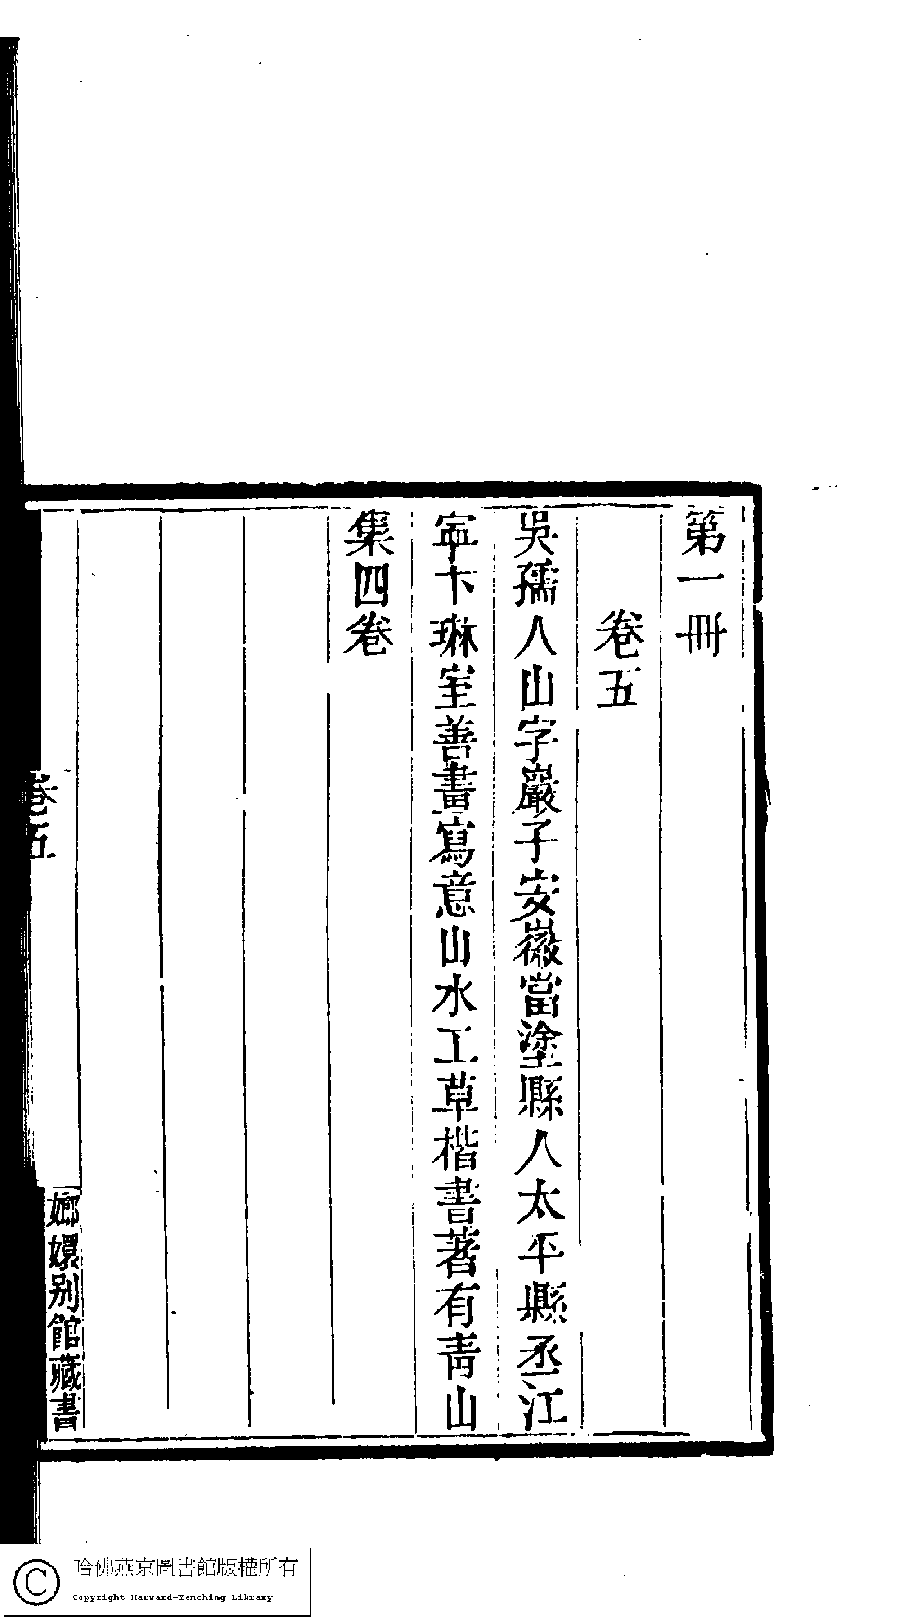 第一冊
卷五
吳孺人山字巖子安徽當塗縣人太平縣丞江
寧卞琳室善畫寫意山水工草楷書著有青山
集四卷
卷五
嫏嬛别館藏書
哈佛燕京圖書館版權所有
Copyright Harvard-Yenching Library